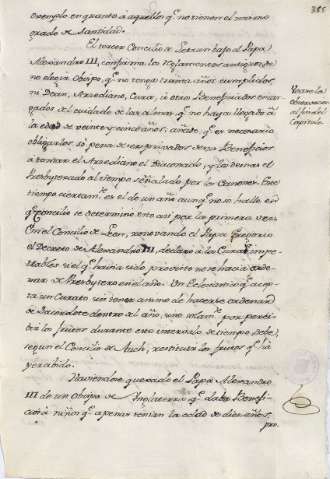 385
exemplo en quanto à aquello q.e no tienen el mismo
grado de santidad.
El tercer Concilio de Letran bajo el Papa
Alexandro III, confirma los Reglamentos antiguos de
no elegir Obispo, q.e no tenga treinta años cumplidos,
ni Dean, Arcediano, Cura, ù otros Beneficiados encar-
gados del cuidado de las almas q.e no hayan llegado à
la edad de veinte y cinco años,
obligarlos so pena de ser privados de sus Beneficios
à tomar el Arcediano el Diaconado, y los demas el
Presbyterado al tiempo señalado por los Canones. Este
tiempo es el de un año aunq.e no se halla en
q.e Concilio se determinó esto asi por la primera vez.
En el Concilio de Leon, renovando el Papa Gregorio
el Decreto de Alexandro III, declaró à los Curas
si el q.e havia sido provisto no se hacia orde-
nar de Presbytero en el año. Un Eclesiastico q.e acep-
ta un Curato sin tener animo de hacerse ordenar
de Sacerdote dentro al año, no solam.te
los frutos durante este intervalo de tiempo debe,
segun el Concilio de Auch, restituir los frutos q.e hà
percibido.
Haviendose quexado el Papa Alexandro
III de un Obispo de Inglaterra q.e daba Benefi-
cios à niños q.e apenas tenian la edad de diez años,
Vease la
observacion
al fin del
Capitulo.